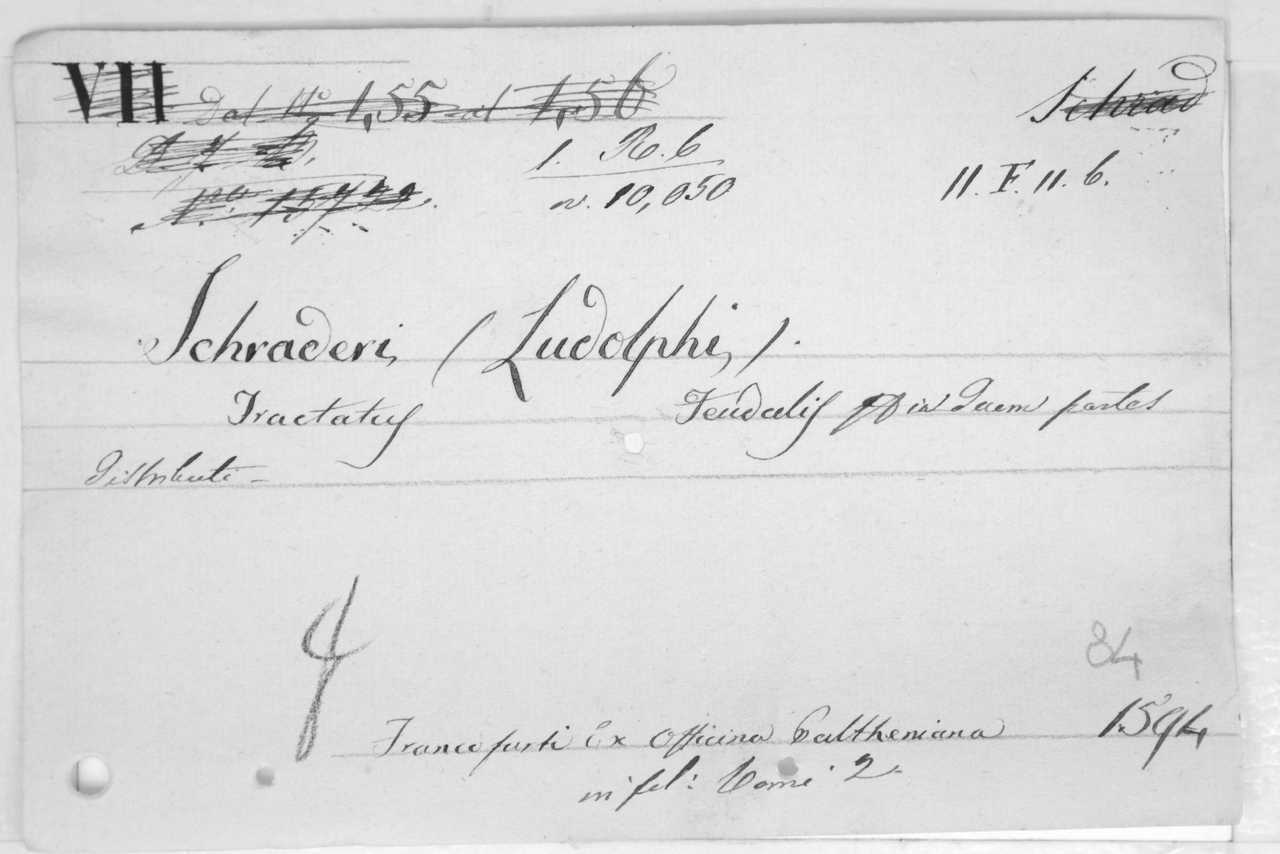 VII Dal Nº 1,55 al 1,56
Schrad
1. R. 6
nº 15722.
n. 10,050
11. F. 11. 6.
Schraderi, (Ludolphi,).
Tractatus Feudalis in partes
Distributi -
4
84
Francofurti Ex Officina Paltheniana 1594
in fol: Tomi 2.